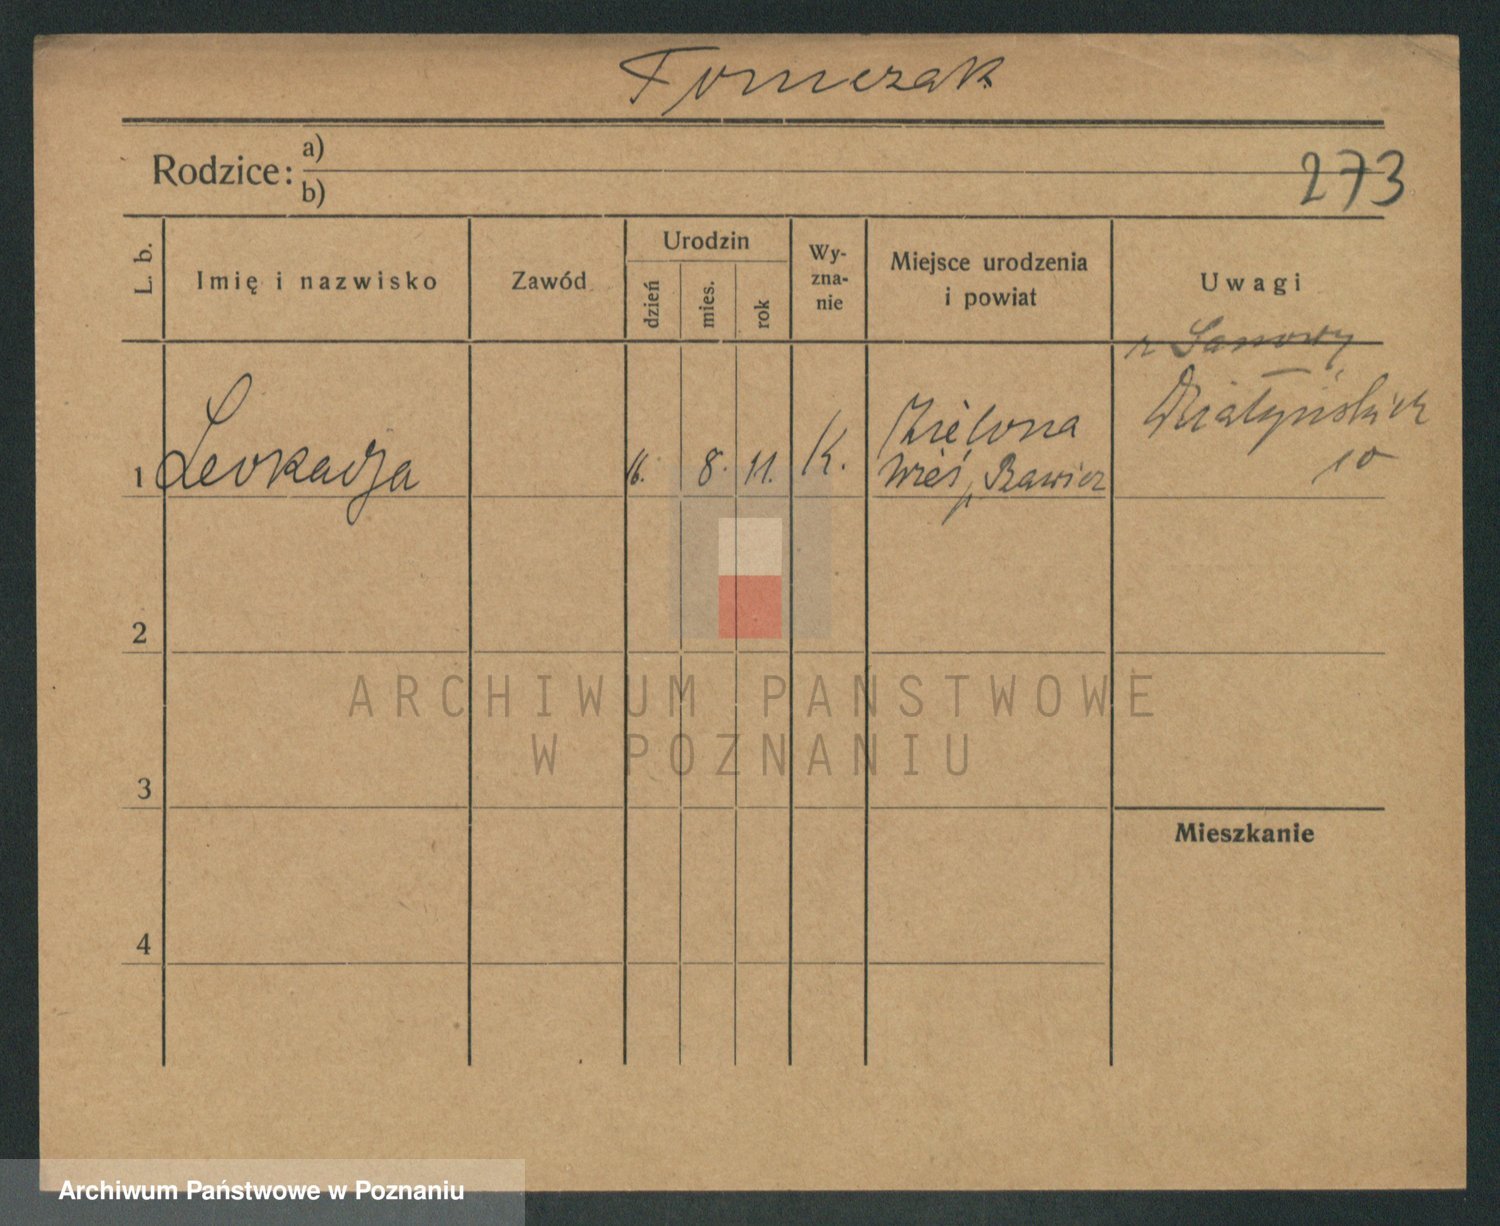 Tomczak
Rodzice: a)
b)
273
L. b.
Imię i nazwisko
Zawód
Urodzin
dzień
mies.
rok
Wy-
zna-
nie
Miejsce urodzenia
i powiat
Uwagi
1 Leokadja 16. 8. 11. K. Zielona
Wieś, p. Rawicz
Działyńskich
10
2
3
4
Mieszkanie
ARCHIWUM PANSTWOWE
W POZNANIU
Archiwum Państwowe w Poznaniu